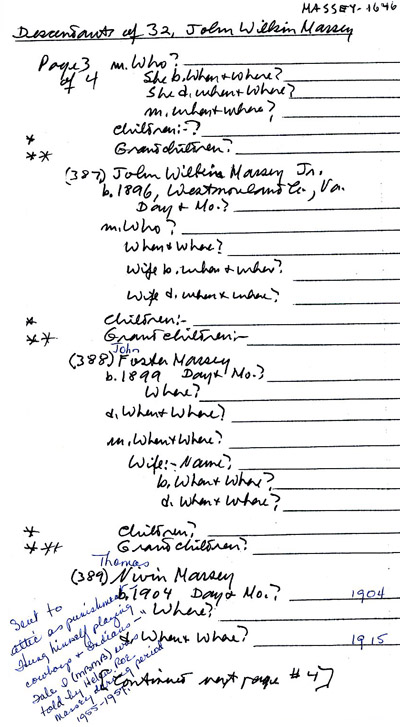 MASSEY-1646
Descendants of 32, John Wilkin Massey
Page 3
of 4
m. Who?
She b. When & where?
She d. when & where?
m. when & where?
* Children:-?
** Grandchildren?
(387) John Wilkins Massey Jr.
b. 1896, Westmoreland Co., Va.
Day & Mo.?
m. Who?
When & Where?
Wife b. when & where?
Wife d. when & where?
* Children:-
** Grandchildren:-
John
(388) Foster Massey
b. 1899 Day & Mo.?
Where?
d. When & Where?
m. When & Where?
Wife:- Name?
b. When & Where?
d. When & Where?
* Children?
*** Grandchildren?
Thomas
(389) Nivin Massey
b. 1904 Day & Mo.? 1904
Where?
d. When & Where? 1915
[Continued next page #4]
Sent to
attic as punishment
Hung himself playing
cowboys & Indians -"
Tale I (MPBMB) was
told by Helen Roe
Massey during period
1955-1957.